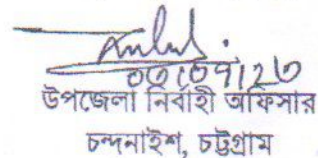 উপজেলা নির্বাহী অফিসার
চন্দনাইশ, চট্টগ্রাম